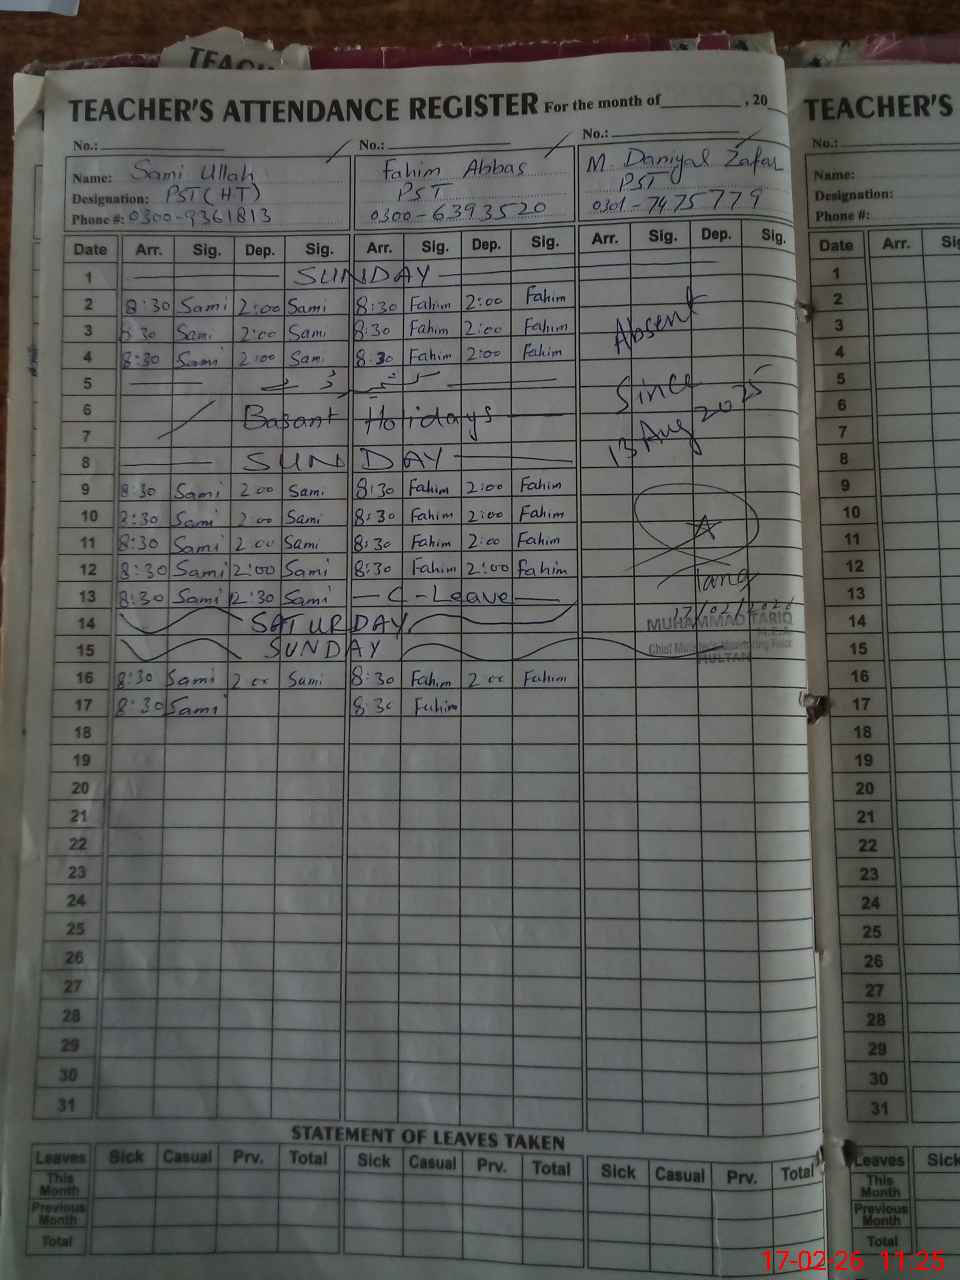 TEACHER'S ATTENDANCE REGISTER For the month of , 20 TEACHER'S
No.: No.: No.: No.:
Name: Sami Ullah Fahim Abbas M. Daniyal Zafar Name:
Designation: PST (HT) PST PST Designation:
Phone #: 0300-9361813 0300-6393520 0301-7475779 Phone #:
Date Arr. Sig. Dep. Sig. Arr. Sig. Dep. Sig. Arr. Sig. Dep. Sig. Date Arr.
1 SUNDAY 1
2 8:30 Sami 2:00 Sami 8:30 Fahim 2:00 Fahim 2
3 8:30 Sami 2:00 Sami 8:30 Fahim 2:00 Fahim Absent 3
4 8:30 Sami 2:00 Sami 8:30 Fahim 2:00 Fahim 4
5 Since 5
6 Basant Holidays 13 Aug 2025 6
7 7
8 SUNDAY 8
9 8:30 Sami 2:00 Sami 8:30 Fahim 2:00 Fahim 9
10 8:30 Sami 2:00 Sami 8:30 Fahim 2:00 Fahim 10
11 8:30 Sami 2:00 Sami 8:30 Fahim 2:00 Fahim 11
12 8:30 Sami 2:00 Sami 8:30 Fahim 2:00 Fahim 12
13 8:30 Sami 2:30 Sami C-Leave 17/02/2026 13
14 SATURDAY MUHAMMAD TARIQ 14
15 SUNDAY MULTAN 15
16 8:30 Sami 2:00 Sami 8:30 Fahim 2:00 Fahim 16
17 8:30 Sami 8:30 Fahim 17
18 18
19 19
20 20
21 21
22 22
23 23
24 24
25 25
26 26
27 27
28 28
29 29
30 30
31 31
STATEMENT OF LEAVES TAKEN
Leaves Sick Casual Prv. Total Sick Casual Prv. Total Sick Casual Prv. Total Leaves Sick
This Month This Month
Previous Month Previous Month
Total Total
17-02-26 11:25